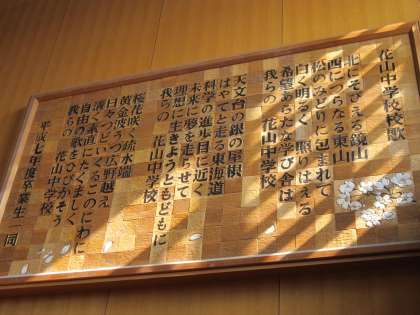 花山中学校校歌
北にそびえる鏡山
西につらなる東山
松のみどりに包まれて
白く明るく照りはえる
希望あらたな学び舎は
我らの 花山中学校
天文台の銀の屋根
はやてと走る東海道
科学の進歩目に近く
未来に夢を走らせて
理想に生きようともどもに
我らの 花山中学校
桜花咲く疏水端
黄金波うつ広野越え
日々つどいくるこのにわに
清く素直にたくましく
自由の歌をひびかそう
我らの 花山中学校
平成七年度卒業生一同